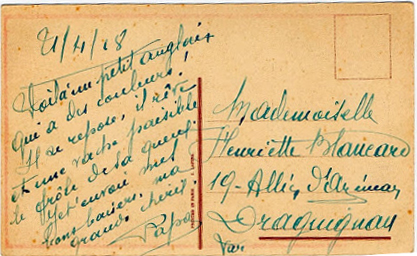 21/4/28
Voilà un petit anglais
qui a des couleurs !
Il se repose, il rêve
et une vache paisible
le frôle de sa queue.
Je t'envoie mes
bons baisers, ma
grande chérie.
Papa
Mademoiselle
Henriette Blancard
19 - Allées d'Azémar
Draguignan
Var